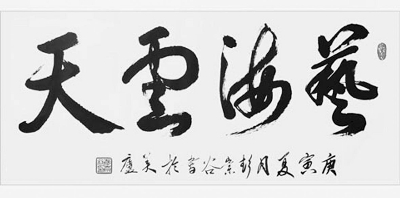 藝海雲天
庚寅夏月彭崇谷書於美廬